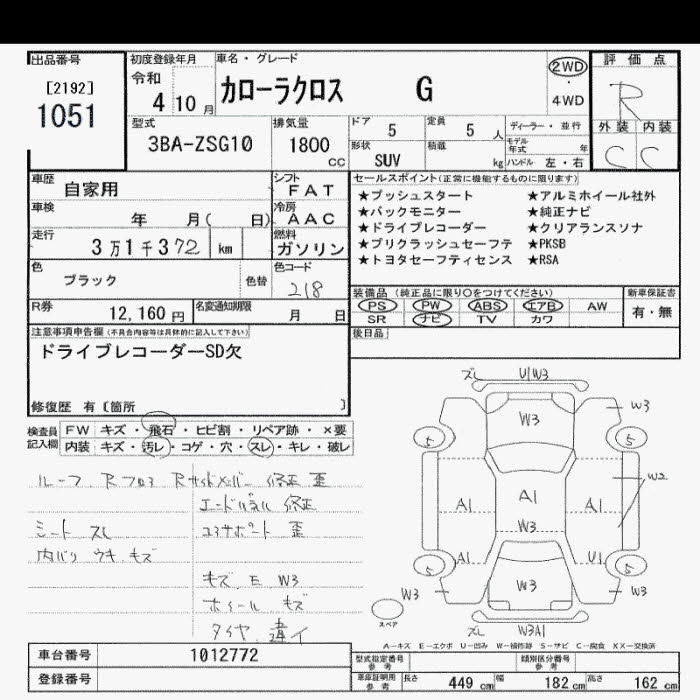 出品番号 初度登録年月 車名・グレード 2WD 評価点
[2192] 令和
1051 4 10月 カローラクロス G 4WD R
型式 排気量 ドア 5 定員 5 人 ディーラー・並行 外装 内装
3BA-ZSG10 1800 cc 形状 SUV 積載 kg モデル年式 年 ハンドル 左・右 C C
車歴 自家用 シフト FAT セールスポイント(正常に機能するものに限ります)
車検 年 月( 日) 冷房 AAC
★プッシュスタート ★アルミホイール社外
★バックモニター ★純正ナビ
走行 3万1千372 km 燃料 ガソリン
★ドライブレコーダー ★クリアランスソナ
★プリクラッシュセーフテ ★PKSB
★トヨタセーフティセンス ★RSA
色 ブラック 色替 色コード 218
装備品(純正品に限り○をつけてください) 新車保証書
R券 12,160円 名変通知期限 月 日
PS PW ABS エアB AW 有・無
SR ナビ TV カワ
注意事項申告欄(不具合内容等は具体的に記入して下さい) 後日品
ドライブレコーダーSD欠
修復歴 有〔箇所 〕
検査員記入欄 FW キズ・飛石・ヒビ割・リペア跡・×要
内装 キズ・汚レ・コゲ・穴・スレ・キレ・破レ
ルーフ. Rフロア Rサイドメンバー 修正 歪
エンドパネル 修正
シート スレ コアサポート 歪
内バリ ウキ.キズ
キズ. E W3
ホイール キズ
タイヤ.違イ
ズレ U1W3
W3 W3
5 5
W2
A1 A1 A1
W3
A1 U1
5 5
W3 W3 W3
スペア
ズレ W3A1
A-キズ E-エクボ U-凹み W-補修跡 S-サビ C-腐食 XX-交換済
車台番号 1012772 型式指定番号 参考 類別区分番号 参考
登録番号 車庫証明用 参考 長さ 449 cm 幅 182 cm 高さ 162 cm